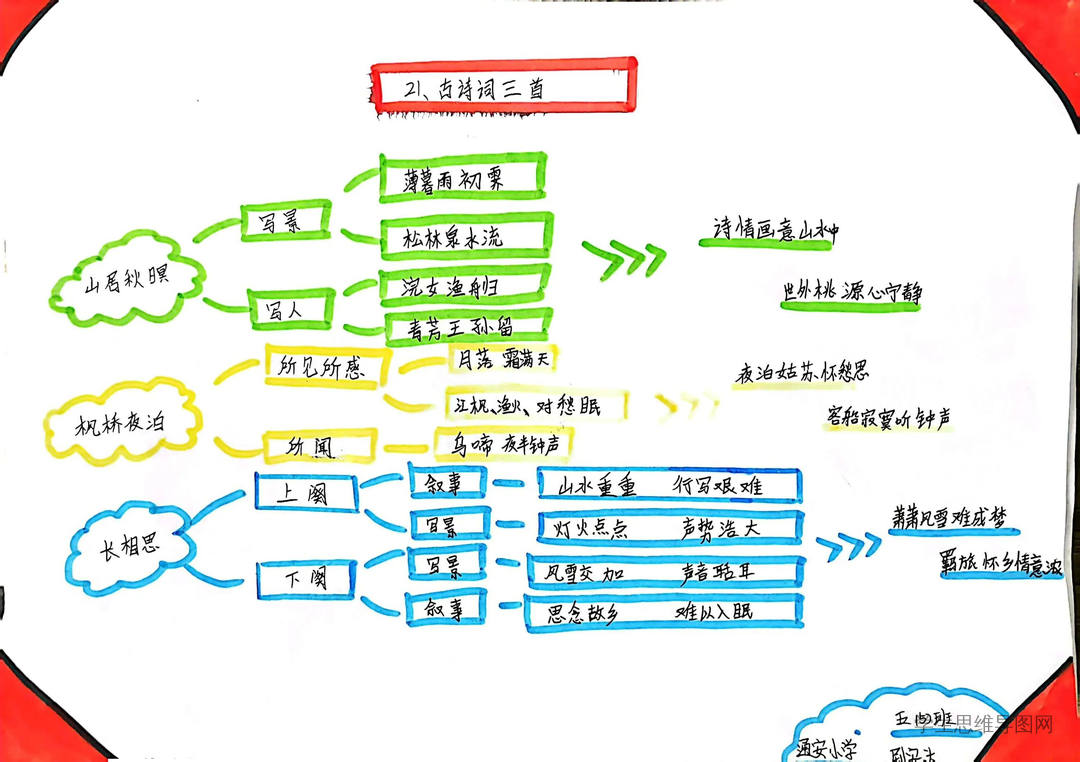 21、古诗词三首
山居秋暝
写景
薄暮雨初霁
松林泉水流
写人
浣女渔舟归
青芳王孙留
诗情画意山水中
世外桃源心守静
枫桥夜泊
所见所感
月落 霜满天
江枫、渔火、对愁眠
所闻
乌啼 夜半钟声
夜泊姑苏怀愁思
客船寂寞听钟声
长相思
上阕
叙事
山水重重 行写艰难
写景
灯火点点 声势浩大
下阕
写景
风雪交加 声音聒耳
叙事
思念故乡 难以入眠
萧萧风雪难成梦
羁旅怀乡情意浓
五四班
学生思维导图网
通安小学